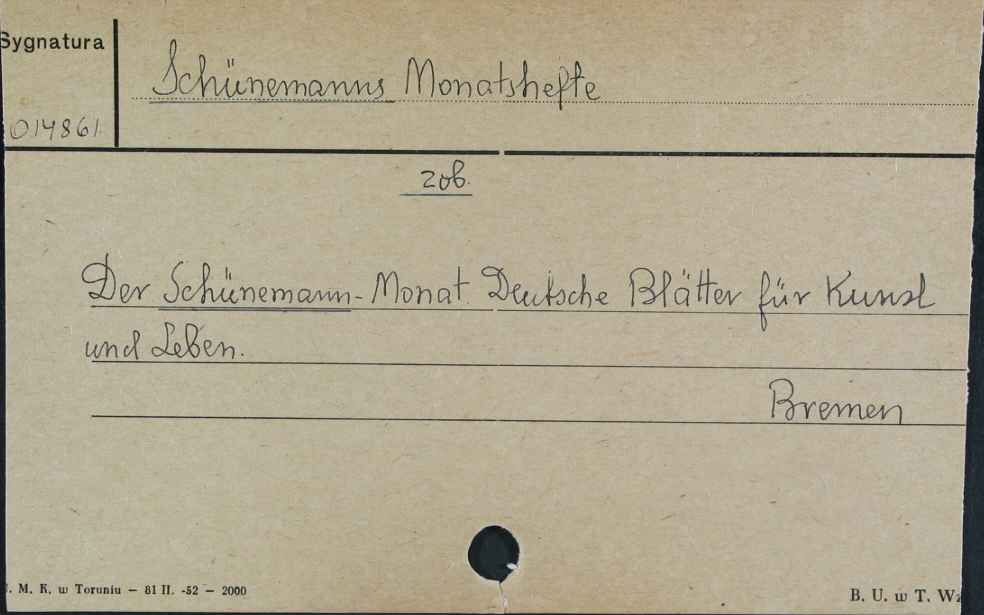 Sygnatura
Schünemanns Monatshefte
014861
zob.
Der Schünemann-Monat. Deutsche Blätter für Kunst
und Leben.
Bremen
. M. K. w Toruniu — 81 II. -52 — 2000
B. U. w T. W